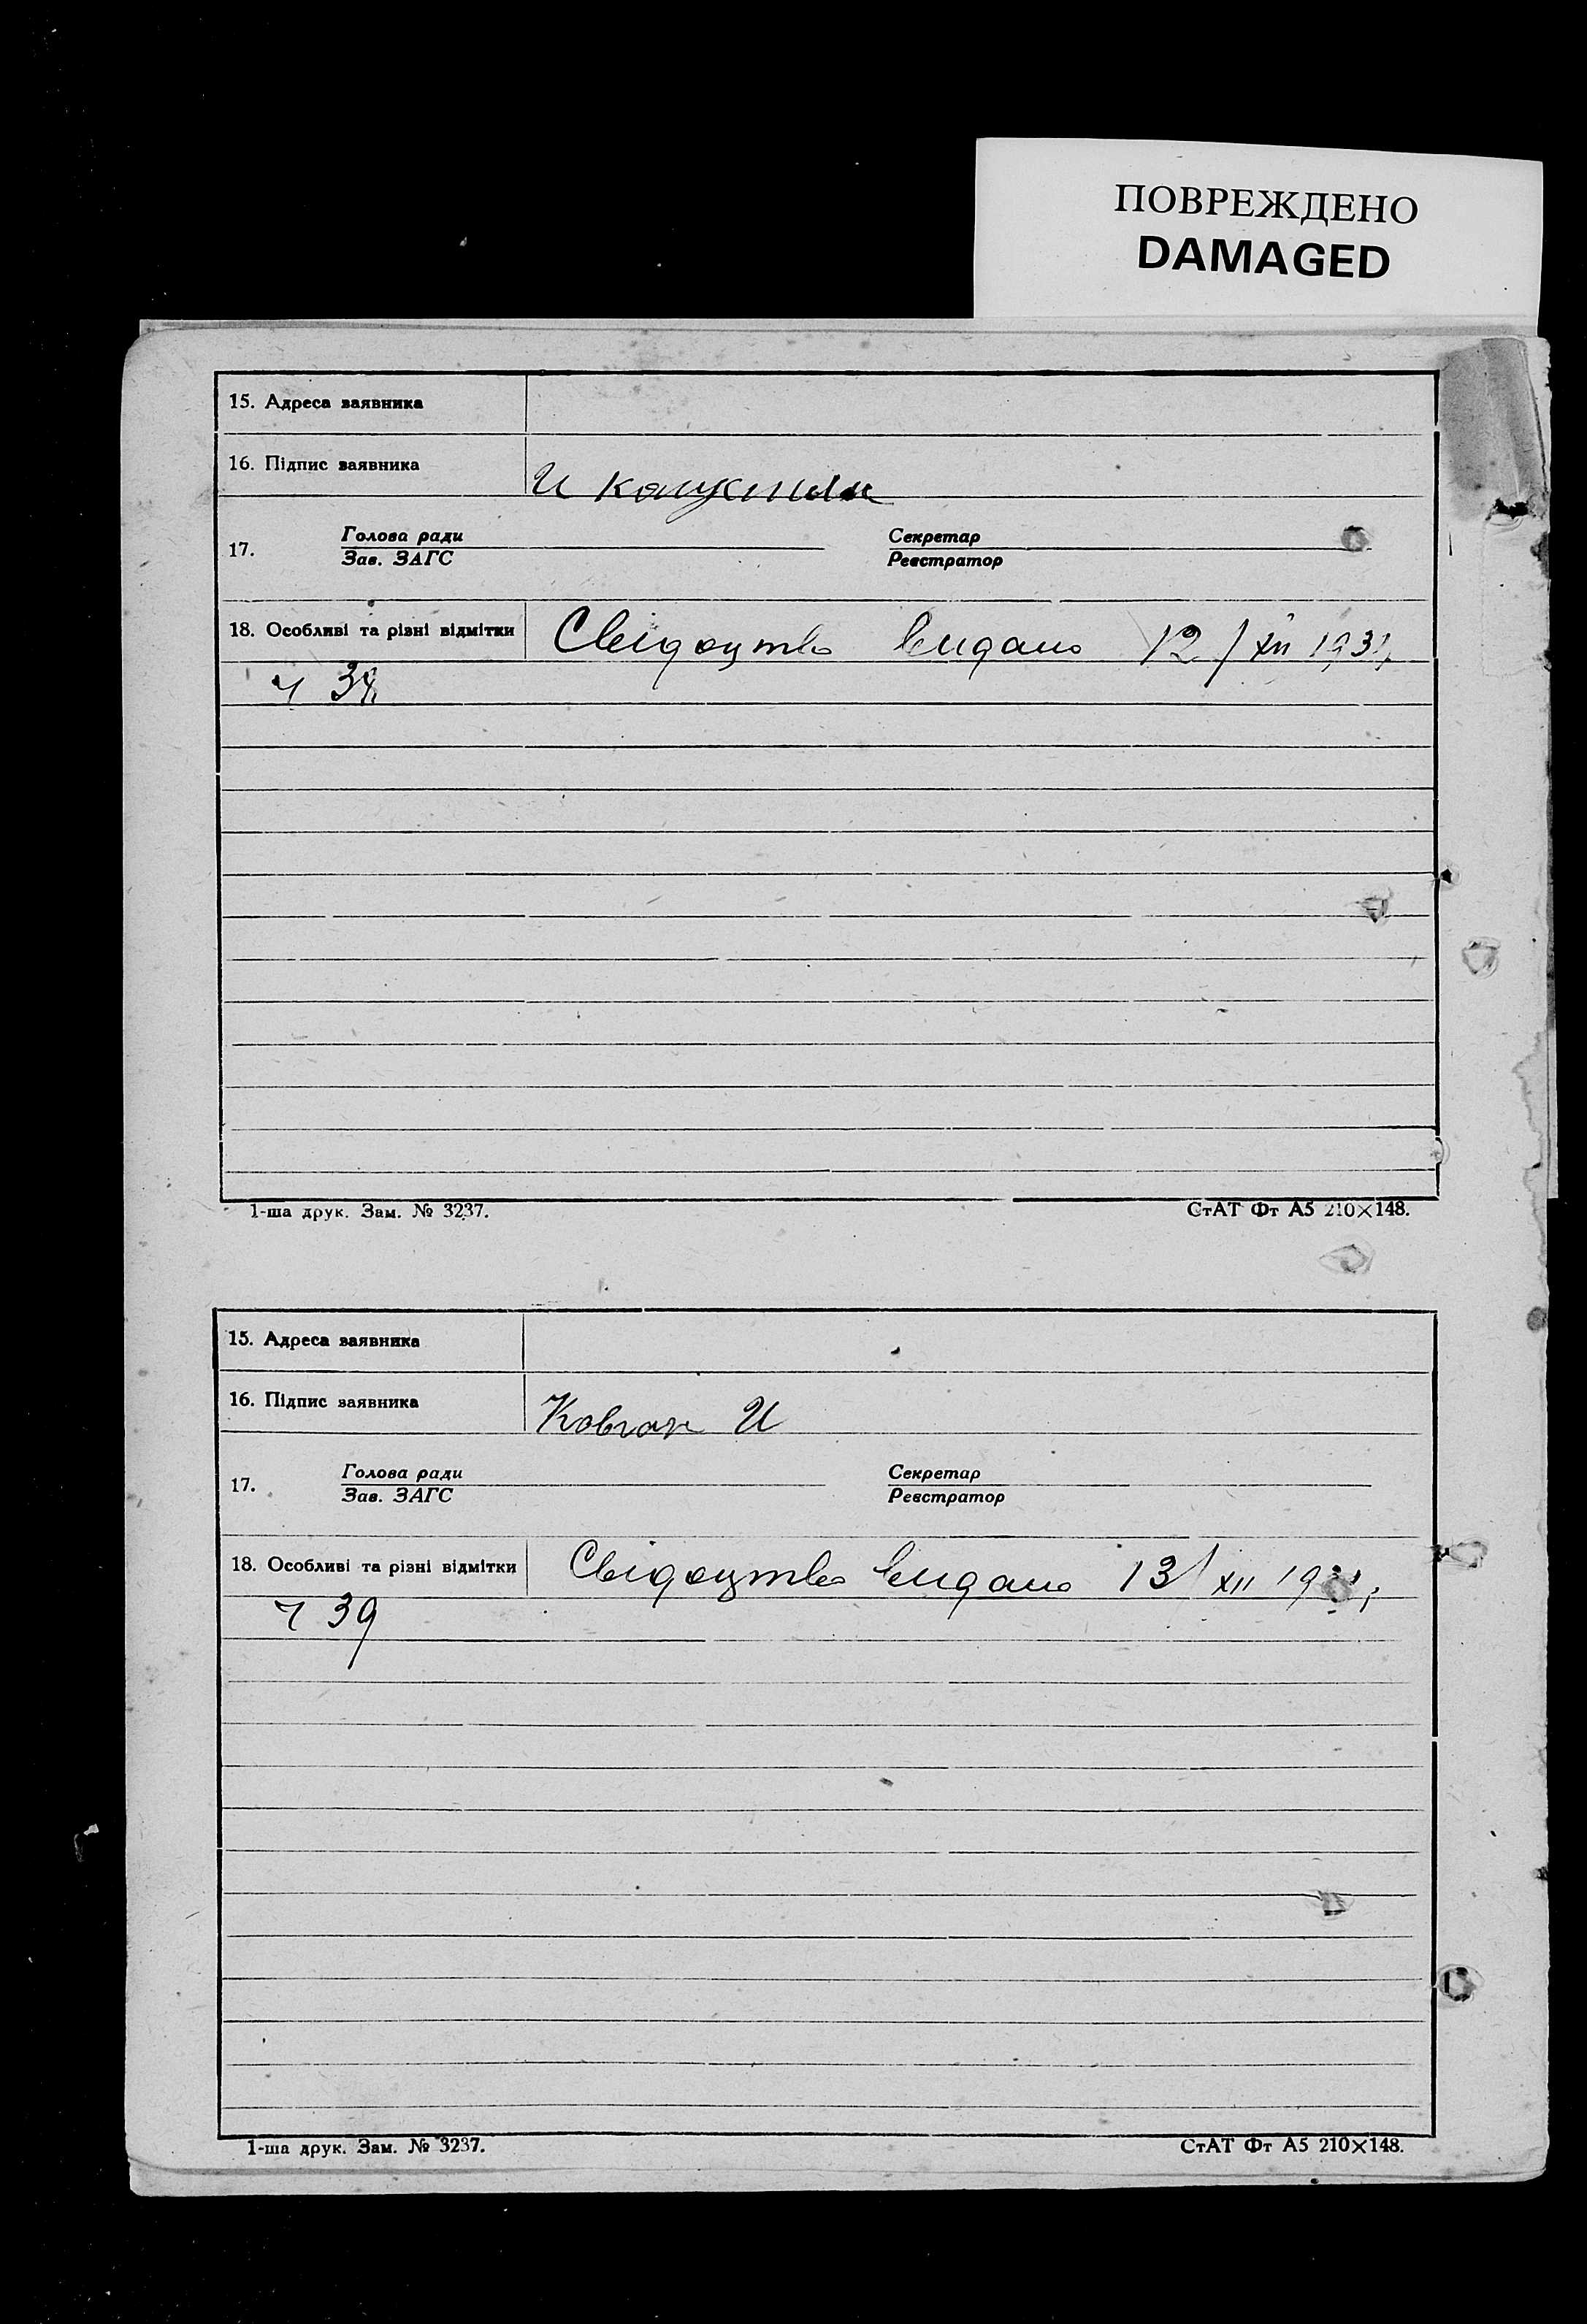 ПОВРЕЖДЕНО
DAMAGED
15. Адреса заявника
16. Підпис заявника
И
17. Голова ради Секретар
Зав. ЗАГС Реєстратор
18. Особливі та різні відмітки Свідоцтво видано 12/XII 193
ч
1-ша друк. Зам. № 3237. СтАТ Фт А5 210×148.
15. Адреса заявника
16. Підпис заявника Ковган И
17. Голова ради Секретар
Зав. ЗАГС Реєстратор
18. Особливі та різні відмітки Свідоцтво видано 13/XII
ч 39
1-ша друк. Зам. № 3237. СтАТ Фт А5 210×148.